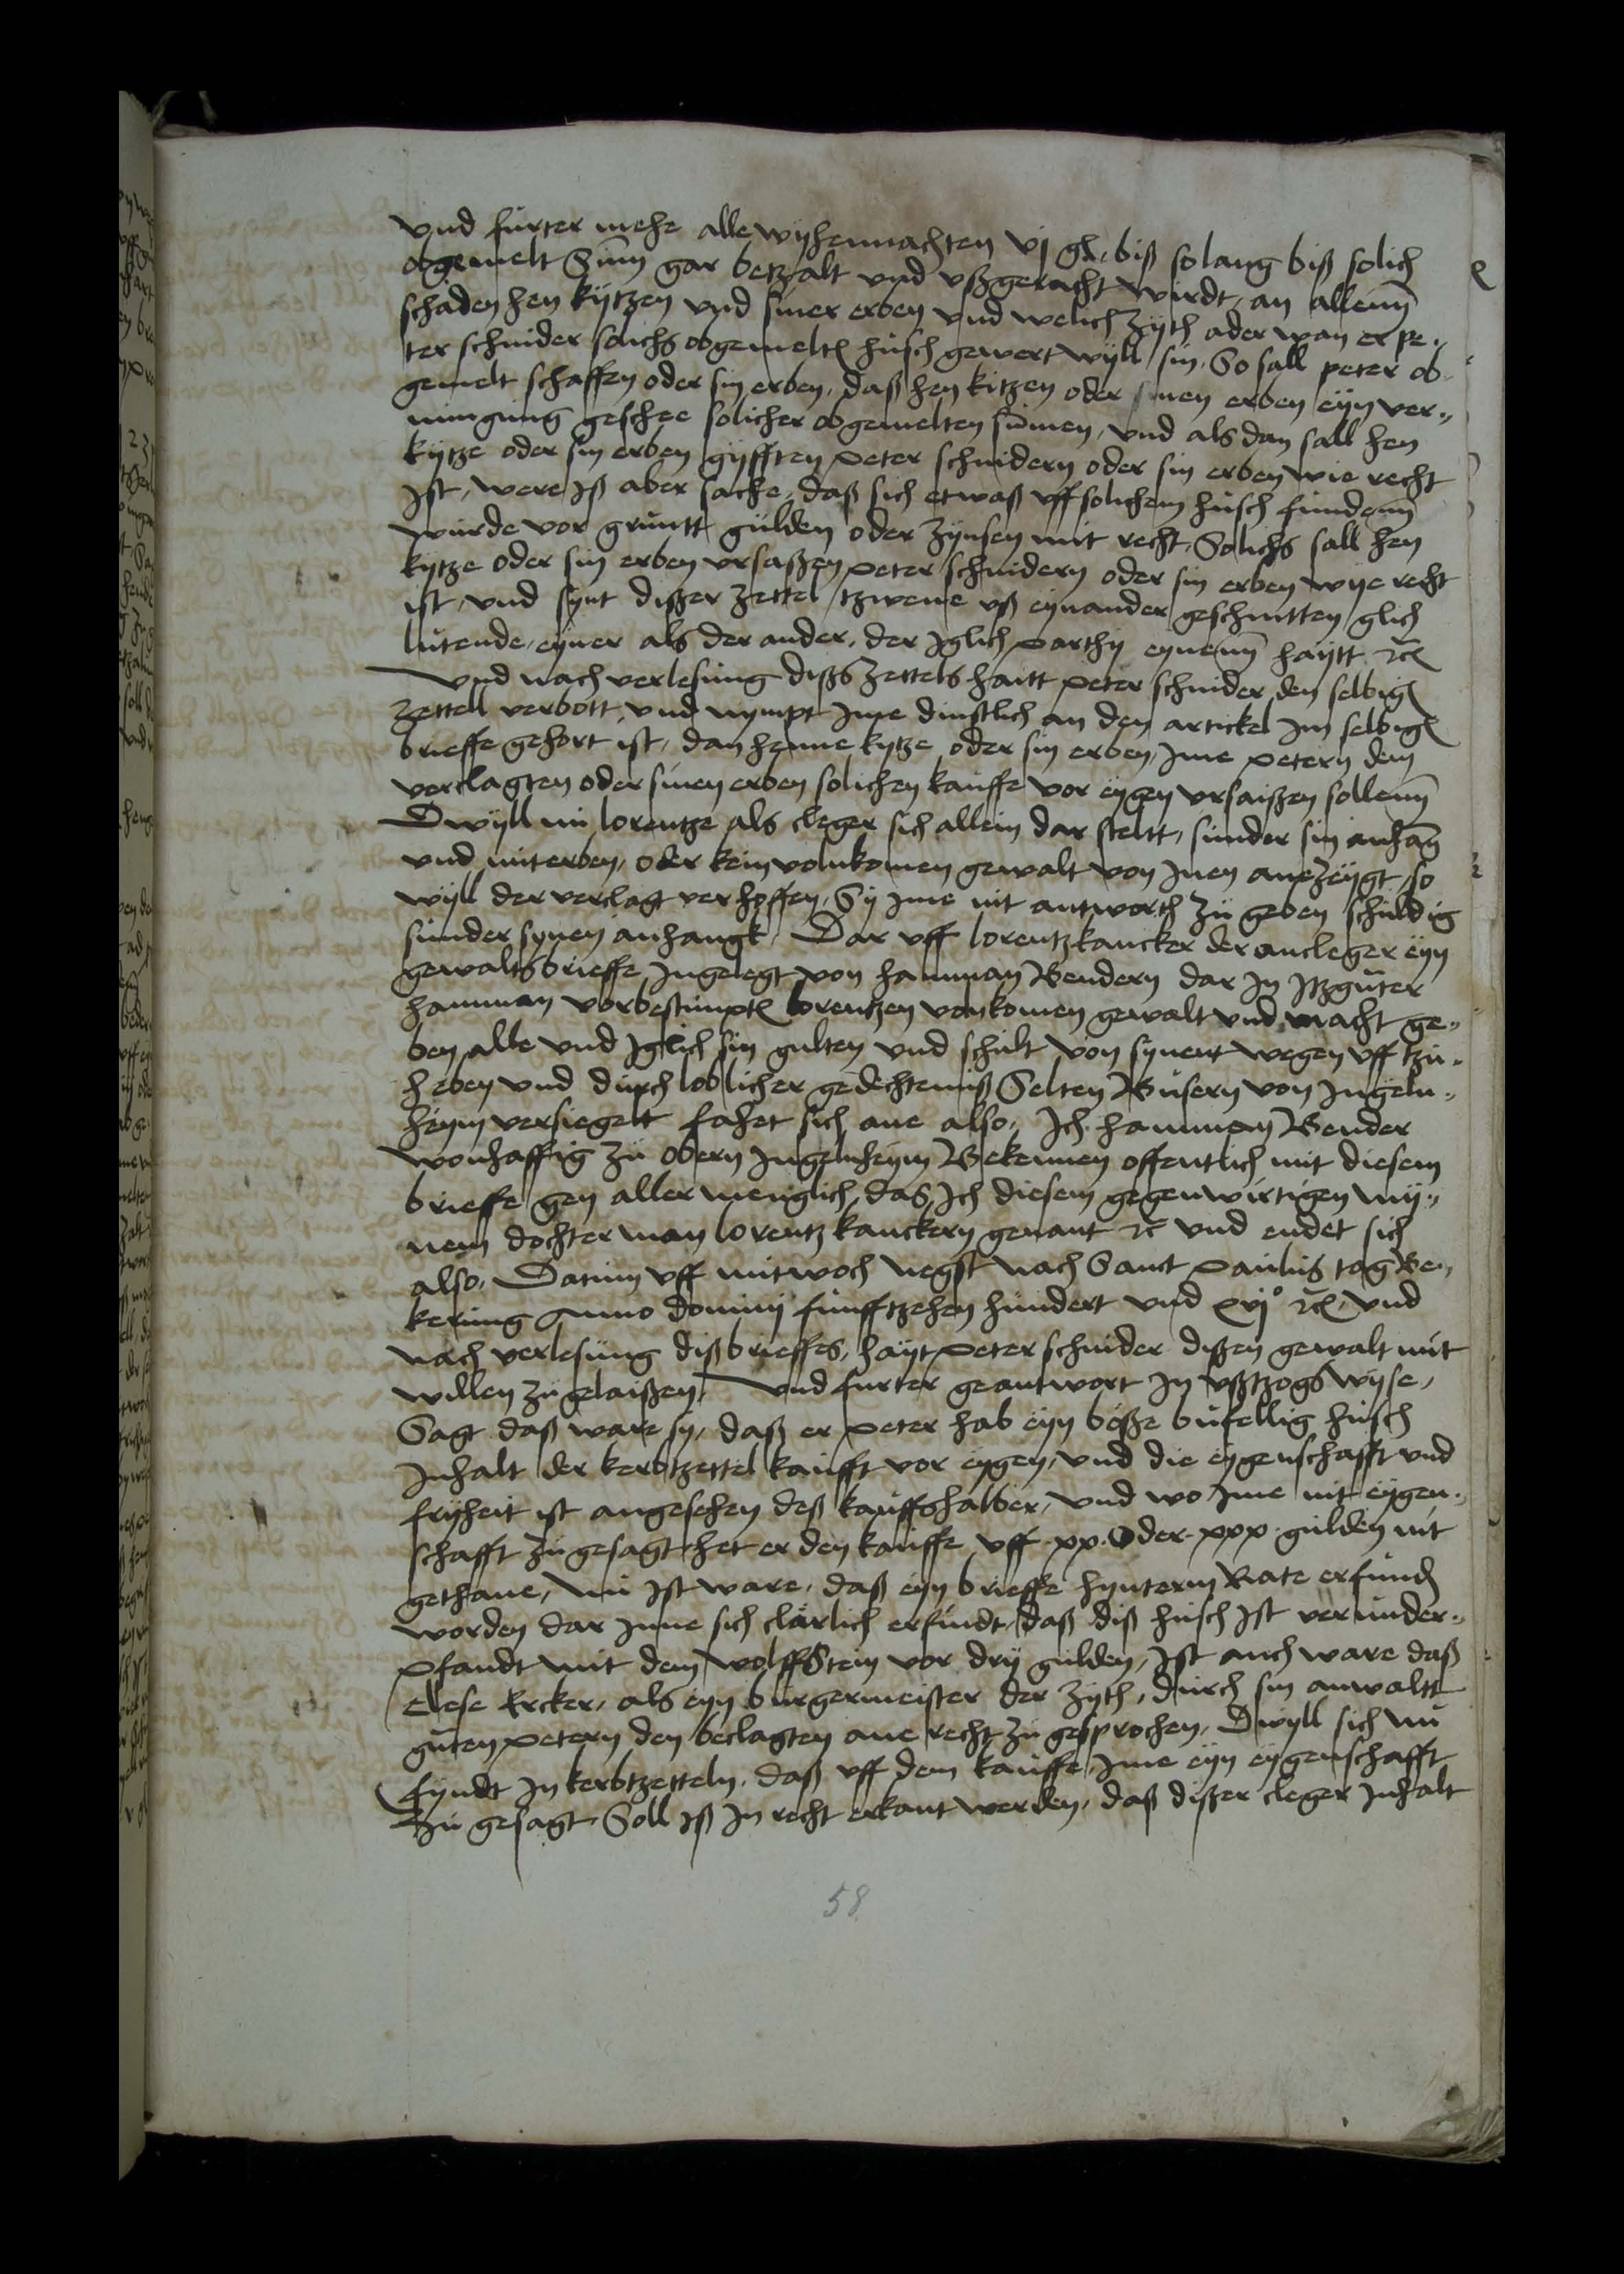 und furter mehe alle wyhennachten vj gl. biß solang biß solich
obgemelt Sum̄ gar betzalt und ußgeracht wirdt, an allenn̄
schaden hen kytzen und siner erben und welich zyth ader wan er pe„
ter schnider solichs obgemelten husch gewert wyll sin. So sall peter ob
gemelt schaffen oder sin erben, daß hen kitzen oder sinen erben eyn ver„
nungung geschee solicher obgemelten sum̄en, und als dan sall hen
kytze oder sin erben gyfften peter schnidern oder sin erben wie recht
Ist, were Iß aber sache, daß sich etwaß uff solichem husch fundenn̄
wurde vor gruntt gulden oder zynsen mit recht, Solichs sall hen
kytze oder sin erben ursaßen peter schnidern oder sin erben wye recht
ist, und synt dißer zettel tzwene uß eynander geschnitten, glich
lutende, eyner als der ander, der Iglich parthy eynenn̄ haytt ꝛc
Und nach verlesung dißs zettels haitt peter schnider den selbigen
zettell verbott, und nympt Ime dinstlich an den artickel Im selbigen
brieffe gehort ist, dan henne kytze oder sin erben, Ime petern dem
verclagten oder sinen erben solichen kauffe vor eygen ursaißen sollenn̄
Dwyll nu lorentze als cleger sich allein dar steltt, sunder sin anhang
und miterben, oder kein volnkomen gewalt von Inen anezeygt, so
wyll der verclagt verhoffen, Sy Ime nit antworth zu geben schuldig
sunder synen anhangk, Dar uff lorentz kancker der ancleger eyn
gewaltsbrieffe Ingelegt von hamman Bendern dar In Itzguter
hamman vorbestimpten lorentzen vonkomen gewalt und macht ge„
ben, alle und Iglich sin gulten und schult von synent wegen uff tzu„
heben und durch loblicher gedechtenniß Selten Busern von Ingeln„
heym versiegelt fahet sich ane also, Ich hamman Bender
wonhafftig zu obern Ingelnheym Bekennen offentlich mit diesem
brieffe gen allermeniglich, das Ich diesem gegenwirtigen my„
nem dochterman lorentz kanckern genant ꝛc und endet sich
also, Datum uff mitwoch negst nach Sanct paulus tag Be„
kerung Anno dominj funfftzehen hundert und xvj° ꝛc, und
nach verlesung diß brieffes, hayt peter schnider dißen gewalt mit
willen zugelaißen, und furter geantwort In ußtzogs wyse,
Sagt daß ware sy, daß er peter hab eyn böße bufellig husch
Inhalt der kerbtzettel kaufft vor eygen, und die eygenschafft und
fryheit ist angesehen deß kauffs halber, und wo Ime nit eygen„
schafft zu gesagt het er den kauffe uff xx. Oder xxx gulden nit
gethane, Nu Ist ware, daß eyn brieffe hynterm Rate erfunden
worden dar Inne sich clärlich erfindt, daß diß husch Ist verunder„
pfandt mit dem Wolffstein vor dry gulden, Ist auch ware daß
Clese Ercker, als eyn burgermeister der zyth, durch sin anwaltt
guten petern den beclagten ane recht zu gesprochen, Dwyll sich nu
fyndt In kerbtzetteln, daß uff dem kauffe, Ime eyn eygenschafft
zu gesagt, Soll Iß In recht erkant werden, daß dißer cleger Inhalt
58